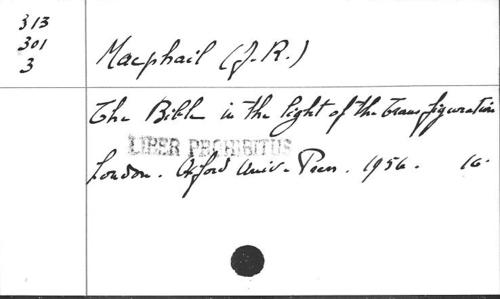 313
301
3
Macphail (J.R.)
The Bible in the light of the Transfiguration
LIBER PROHIBITUS
London. Oxford Univ. Press. 1956. 16.